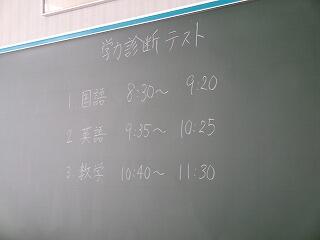 学力診断テスト
1 国語 8:30〜 9:20
2 英語 9:35〜 10:25
3 数学 10:40〜 11:30